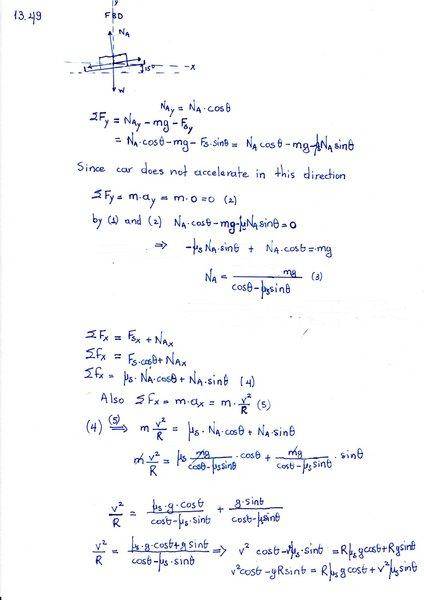 13.49
FBD
y
N_A
x
15°
W
N_Ay = N_A · cosθ
ΣFy = N_Ay − mg − F_Sy
= N_A · cosθ − mg − F_S · sinθ = N_A cosθ − mg − μ_s N_A sinθ
Since car does not accelerate in this direction
ΣFy = m·a_y = m·0 = 0 (2)
by (1) and (2) N_A · cosθ − mg − μ N_A sinθ = 0
⇒ −μ_s N_A sinθ + N_A cosθ = mg
N_A = mg / (cosθ − μ_s sinθ) (3)
ΣFx = F_Sx + N_Ax
Σfx = F_S · cosθ + N_Ax
Σfx = μ_s · N_A cosθ + N_A · sinθ (4)
Also ΣFx = m·a_x = m · v²/R (5)
(4) (5)⇒ m v²/R = μ_s · N_A · cosθ + N_A · sinθ
m v²/R = μ_s mg / (cosθ − μ_s sinθ) · cosθ + mg / (cosθ − μ_s sinθ) · sinθ
v²/R = μ_s · g · cosθ / (cosθ − μ_s · sinθ) + g · sinθ / (cosθ − μ_s sinθ)
v²/R = (μ_s · g · cosθ + g sinθ) / (cosθ − μ_s · sinθ) ⇒ v² cosθ − v²μ_s · sinθ = Rμ_s g cosθ + Rg sinθ
v² cosθ − gR sinθ = Rμ_s g cosθ + v² μ_s sinθ